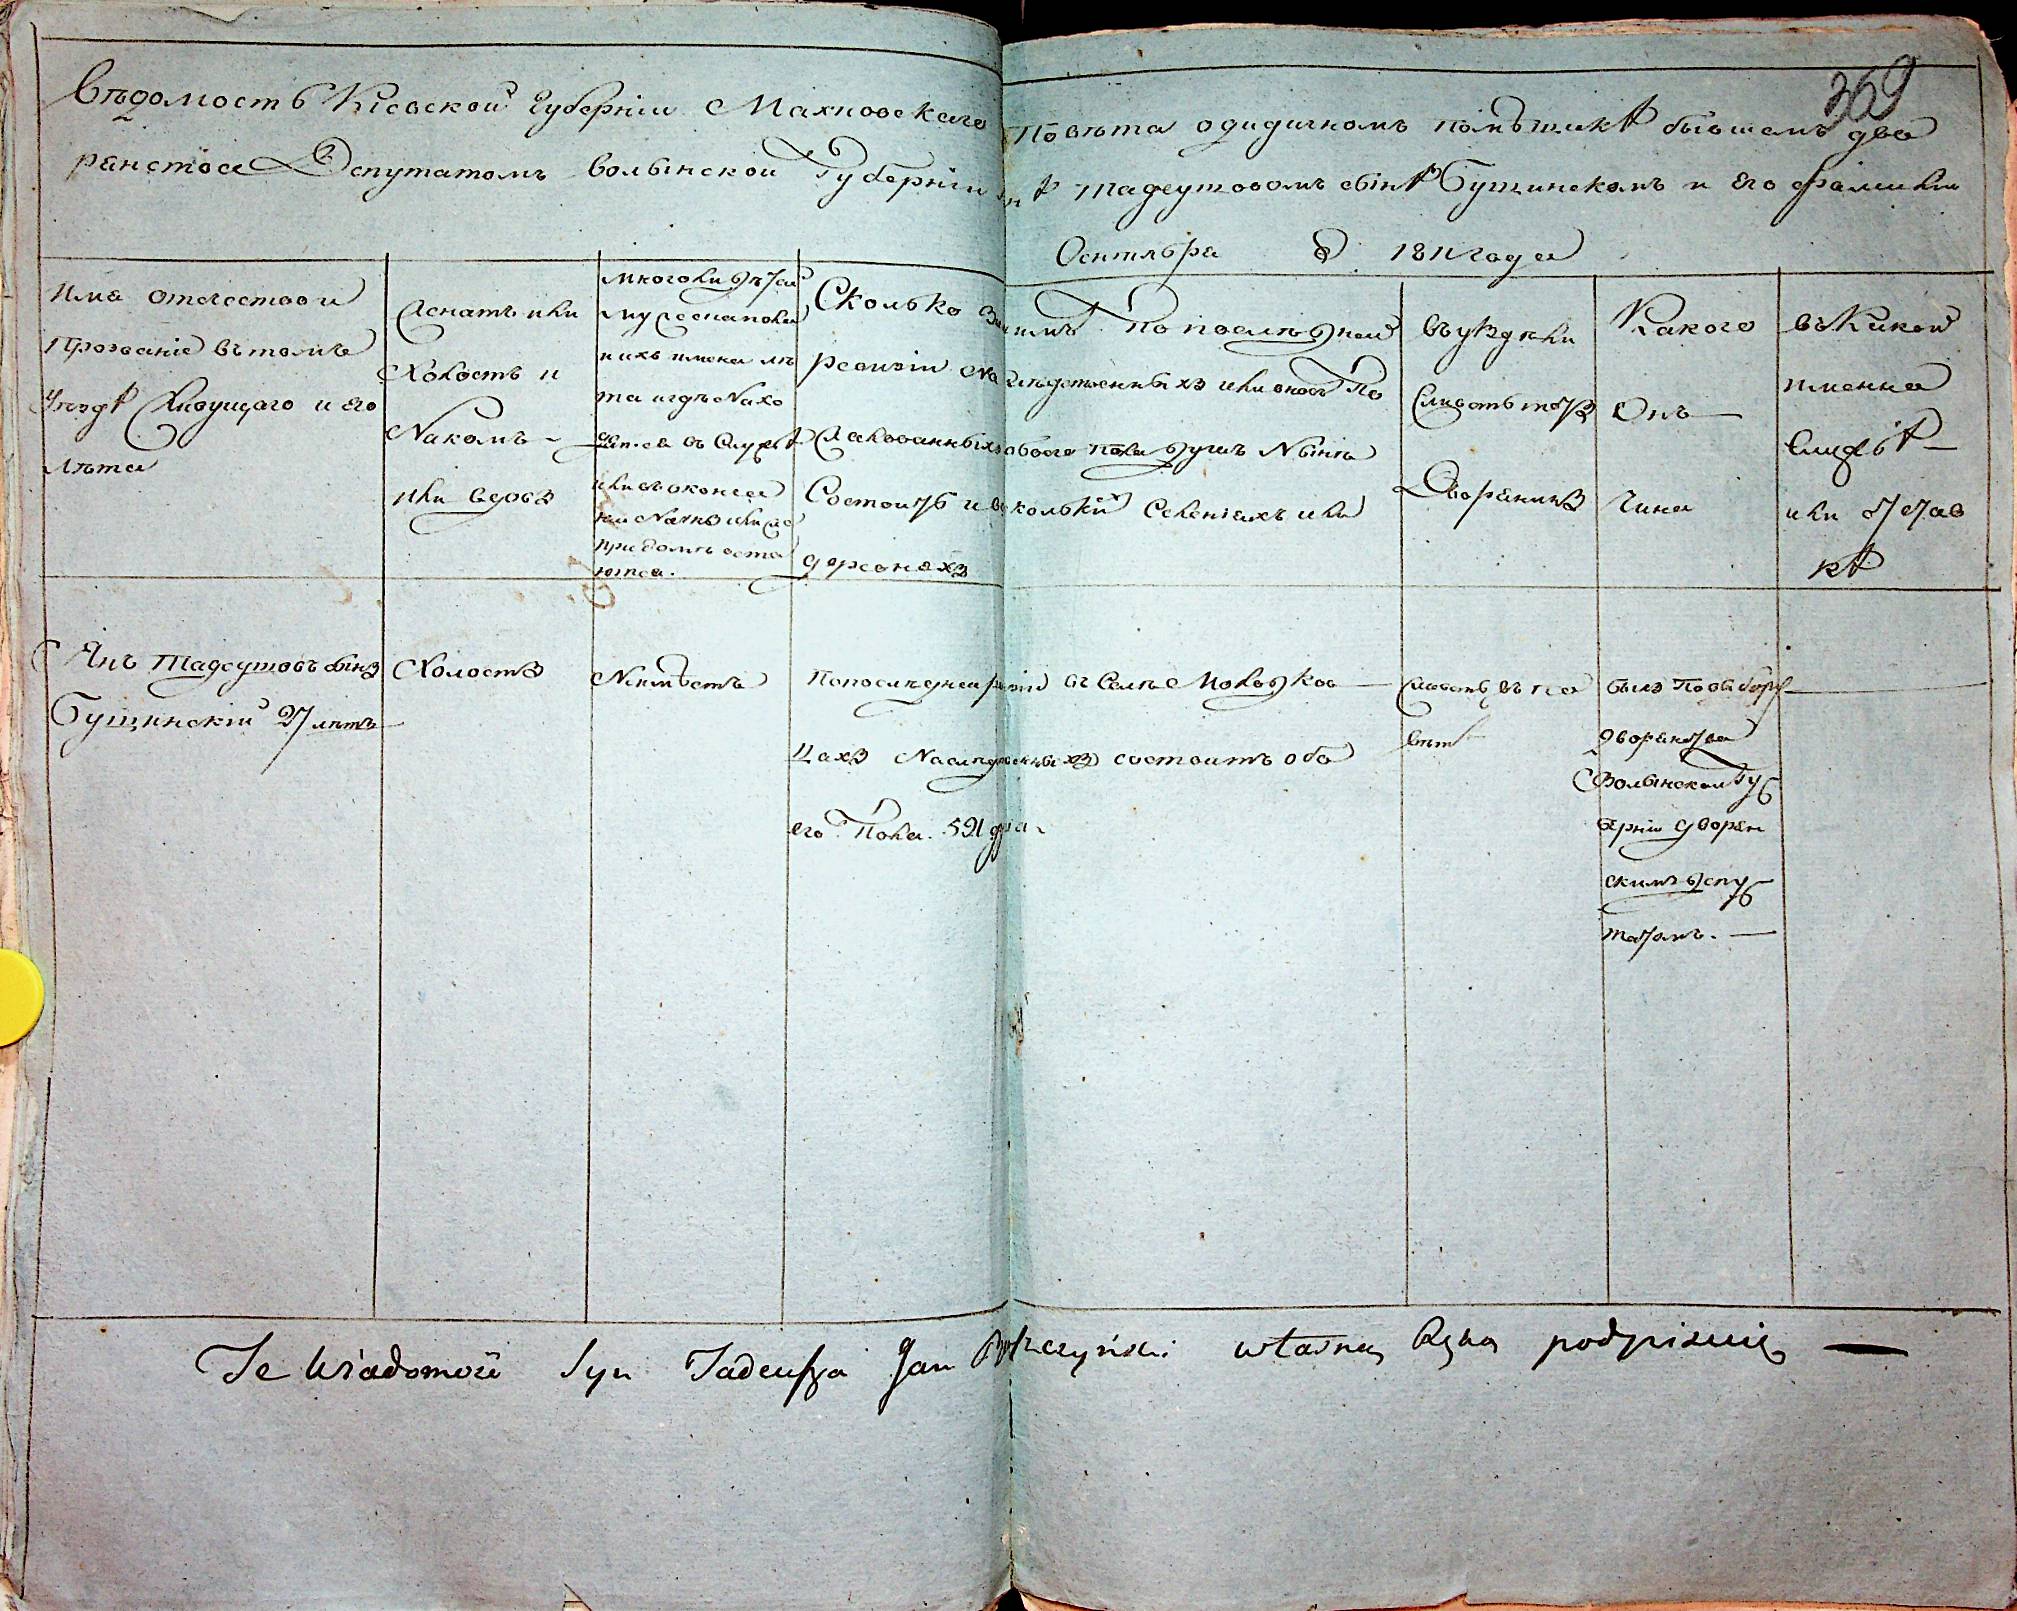 369
Вѣдомость Кіевской Губерніи Махновскаго Повѣта о дидичномъ помѣщикѣ бывшемъ дво
ранства Депутатомъ волынской Губерніи Янѣ Тадеушовомъ сынѣ Бущинскомъ и его фамиліи
Октября 1811 года
Има отечество и
Прозваніе въ томъ
Уѣздѣ Живущаго и его
Лѣта
Женатъ или
Холостъ и
На комъ
или вдовъ
много ли дѣтей
мужеска пола
и ихъ имена лѣ
та и гдѣ Нахо
дятся въ Службѣ
или въ
при домѣ оста
ются.
Сколько За нимъ По послѣдней
ревизіи Наслѣдственныхъ или вновь По
жалованныхъ обоего пола душъ Нынѣ
Состоитъ и въ колькихъ Селеніяхъ или
деревняхъ
въ уѣздѣ ли
Живетъ тотъ
Дворянинъ
Какого
Онъ
Чина
въ Какой
именна
Службѣ
или Отстав
кѣ
Янъ Тадеушовъ сынъ
Бущинскій 27 лѣтъ
Холостъ
Неимѣетъ
По послѣдней ревизіи въ Селѣ Молодков
цахъ Наслѣдственныхъ состоитъ обо
его Пола 521 душа
Живетъ въ По
вѣтѣ
былъ По выбору
дворянства
Волынской Гу
берніи дворян
скимъ депу
татомъ.
Te Wiadomość Syn Tadeusza Jan Buszczyński własną Ręką podpisuię